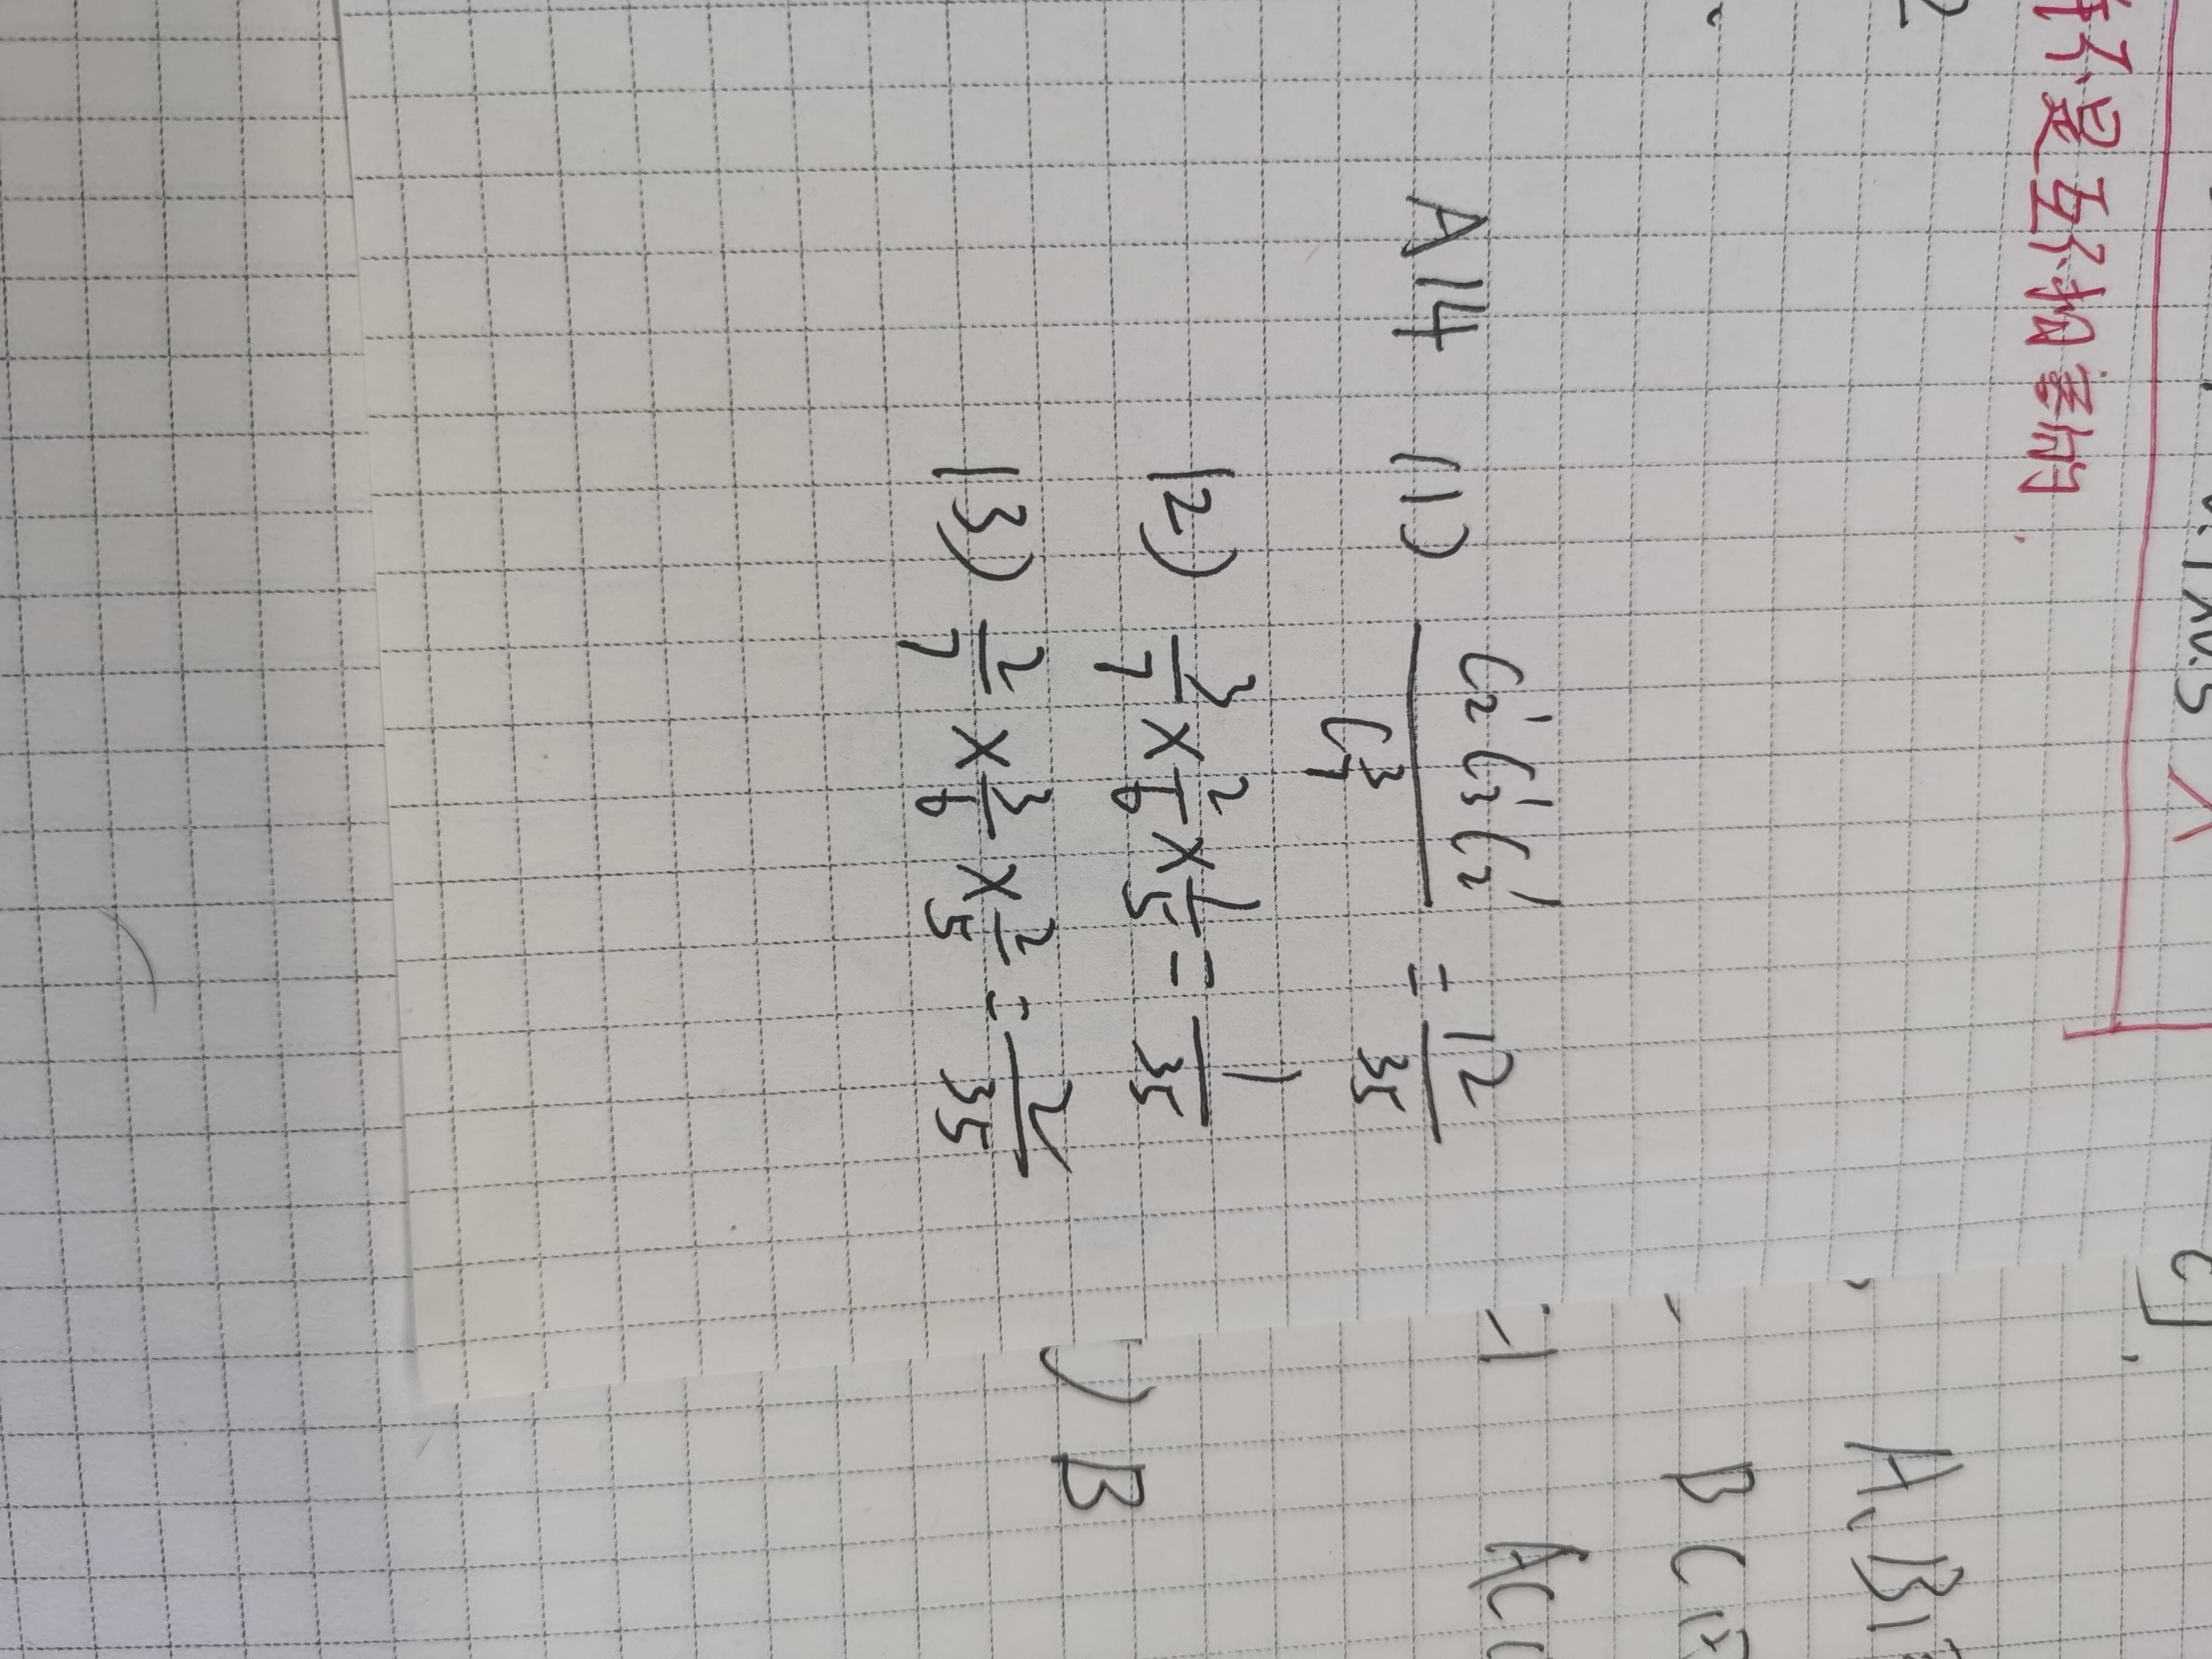 是互相

A14 (1) C₂¹C₃¹C₂¹ / C₇³ = 12/35
(2) 3/7 × 2/6 × 1/5 = 1/35
(3) 2/7 × 3/6 × 2/5 = 2/35
A、B
B C
AC
) B